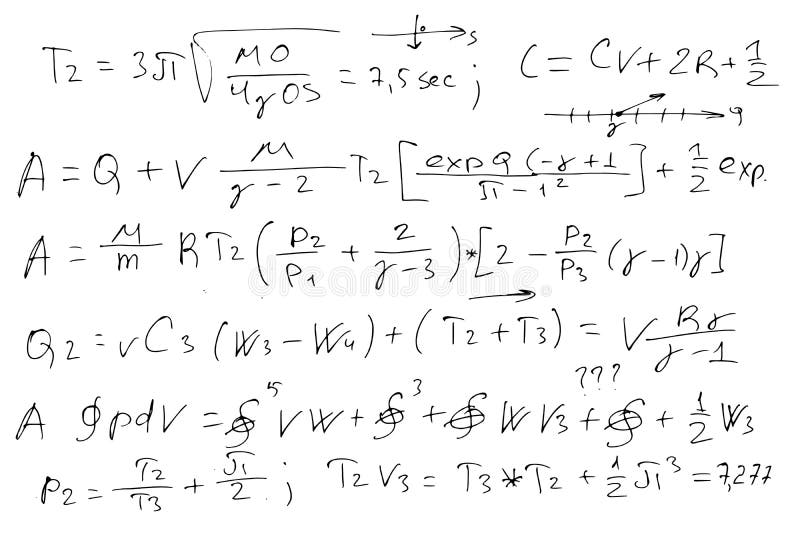 T₂ = 3π√(MO / 4γOS) = 7,5 sec ; S C = CV + 2R + 1/2
γ 9
A = Q + V M/(γ - 2) T₂ [exp Q (-γ + 1 / π - 1²] + 1/2 exp.
A = M/m RT₂ (P₂/P₁ + 2/(γ - 3)) * [2 - P₂/P₃ (γ - 1)γ]
Q₂ = νC₃ (W₃ - W₄) + (T₂ + T₃) = V Rγ/(γ - 1)
???
A ∮pdV = ∮⁵ VW + ∮³ + ∮ W V₃ + ∮ + 1/2 W₃
P₂ = T₂/T₃ + π/2 ; T₂V₃ = T₃ * T₂ + 1/2 π³ = 7,277
dreamstime